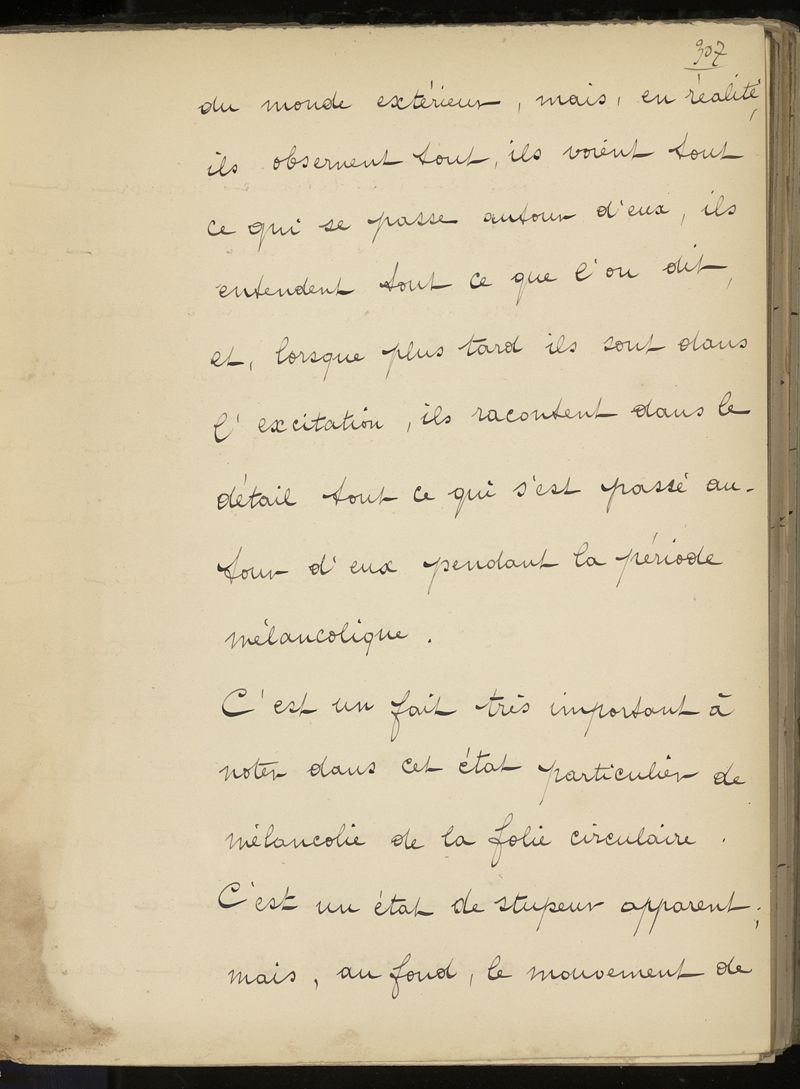 307
du monde extérieur, mais, en réalité,
ils observent tout, ils voient tout
ce qui se passe autour d'eux, ils
entendent tout ce que l'on dit,
et, lorsque plus tard ils sont dans
l'excitation, ils racontent dans le
détail tout ce qui s'est passé au-
tour d'eux pendant la période
mélancolique.
C'est un fait très important à
noter dans cet état particulier de
mélancolie de la folie circulaire.
C'est un état de stupeur apparent;
mais, au fond, le mouvement de